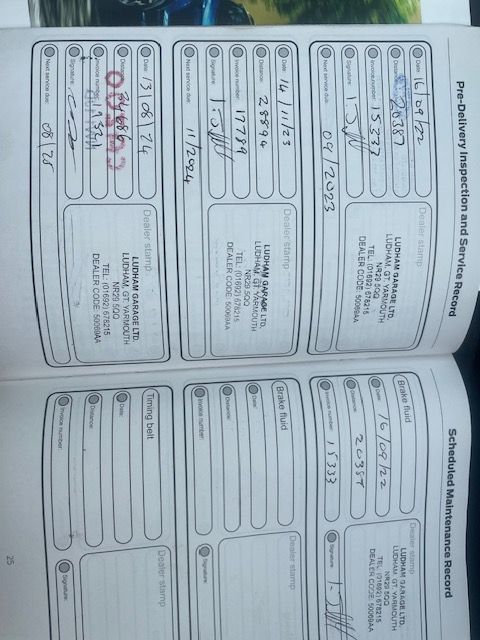 Pre-Delivery Inspection and Service Record
Date: 16/09/22
Distance: 20387
Invoice number: 15333
Signature:
Next service due: 09/2023
Dealer stamp
LUDHAM GARAGE LTD.
LUDHAM, GT. YARMOUTH
NR29 5QQ
TEL: (01692) 678215
DEALER CODE: 50069AA
Date: 14/11/23
Distance: 28894
Invoice number: 17789
Signature:
Next service due: 11/2024
Dealer stamp
LUDHAM GARAGE LTD.
LUDHAM, GT. YARMOUTH
NR29 5QQ
TEL: (01692) 678215
DEALER CODE: 50069AA
Date: 13/08/24
Distance:
Invoice number:
Signature:
Next service due: 08/25
Dealer stamp
LUDHAM GARAGE LTD.
LUDHAM, GT. YARMOUTH
NR29 5QQ
TEL: (01692) 678215
DEALER CODE: 50069AA
Scheduled Maintenance Record
Brake fluid
Date: 16/09/22
Distance: 20387
Invoice number: 15333
Dealer stamp
LUDHAM GARAGE LTD.
LUDHAM, GT. YARMOUTH
NR29 5QQ
TEL: (01692) 678215
DEALER CODE: 50069AA
Signature:
Brake fluid
Date:
Distance:
Invoice number:
Dealer stamp
Signature:
Timing belt
Date:
Distance:
Invoice number:
Dealer stamp
Signature:
25